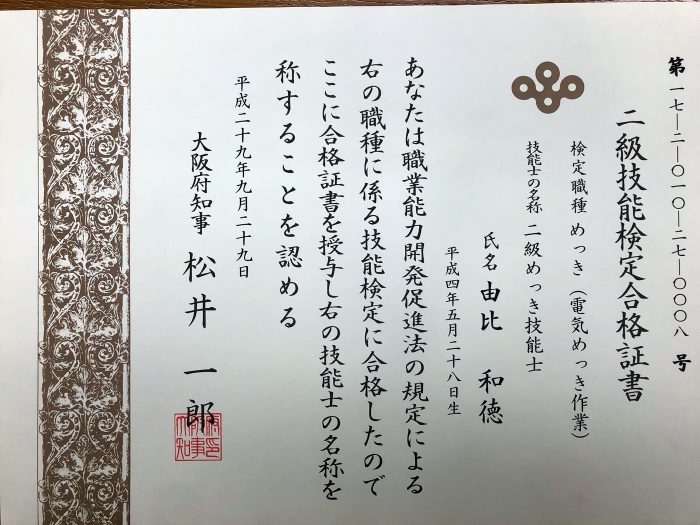 第一七―二―〇一〇―二七―〇〇〇八号
二級技能検定合格証書
検定職種 めっき（電気めっき作業）
技能士の名称 二級めっき技能士
氏名 由比 和徳
平成四年五月二十八日生
あなたは職業能力開発促進法の規定による
右の職種に係る技能検定に合格したので
ここに合格証書を授与し右の技能士の名称を
称することを認める
平成二十九年九月二十九日
大阪府知事 松井 一郎
大阪府知事印